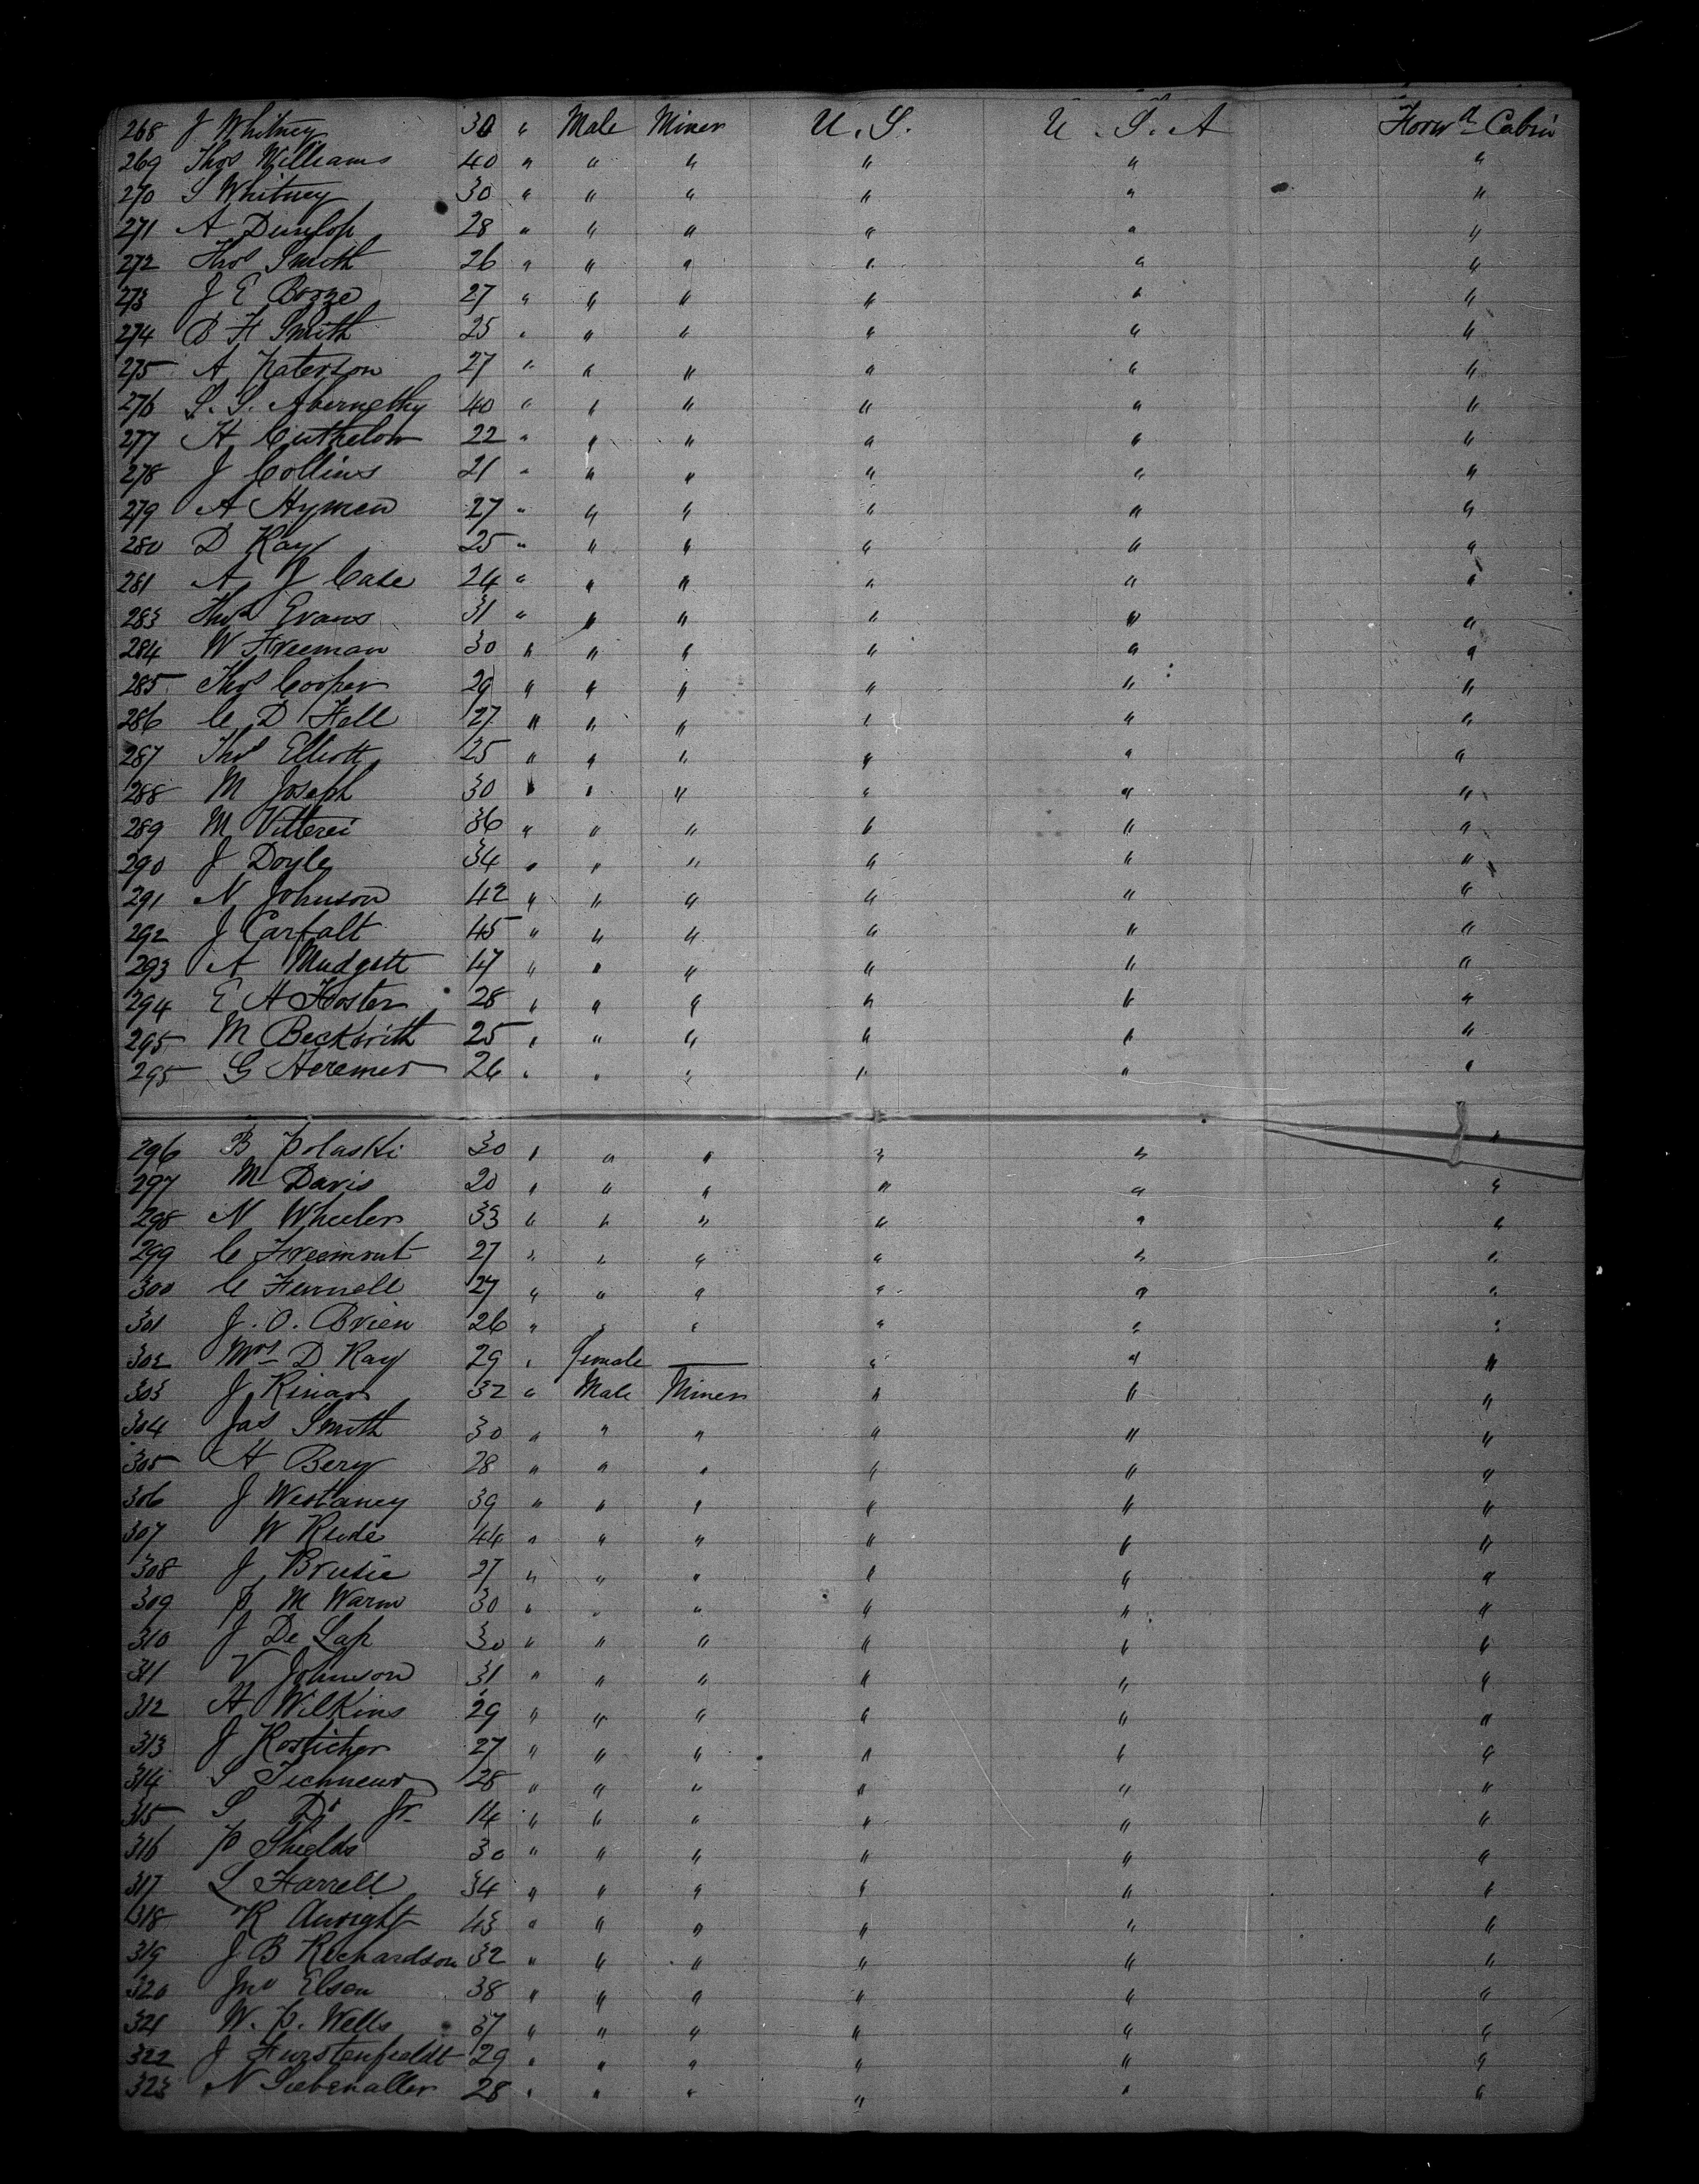 268 J Whitney 30 " Male Miner U. S. U. S. A Forwd Cabin
269 Thos Williams 40 " " " " " "
270 S Whitney 30 " " " " " "
271 A Dunlop 28 " " " " " "
272 Thos Smith 26 " " " " " "
273 J E Bogge 27 " " " " " "
274 B F Smith 25 " " " " " "
275 A Paterson 27 " " " " " "
276 S. S. Abernethy 40 " " " " " "
277 H Cuthelow 22 " " " " " "
278 J Collins 21 " " " " " "
279 A Hymen 27 " " " " " "
280 D Kay 25 " " " " " "
281 A J Case 24 " " " " " "
283 Thos Evans 31 " " " " " "
284 W Freeman 30 " " " " " "
285 Thos Cooper 29 " " " " " "
286 C D Hall 27 " " " " " "
287 Thos Elliott 25 " " " " " "
288 M Joseph 30 " " " " " "
289 M Villerei 36 " " " " " "
290 J Doyle 34 " " " " " "
291 N Johnson 42 " " " " " "
292 J Carfalt 45 " " " " " "
293 A Mudgett 47 " " " " " "
294 E H Foster 28 " " " " " "
295 M Beckwith 25 " " " " " "
295 G Heremer 26 " " " " " "
296 B Polaski 30 " " " " " "
297 M Davis 20 " " " " " "
298 N Wheeler 33 " " " " " "
299 C Freemont 27 " " " " " "
300 C Furnell 27 " " " " " "
301 J. O. Brien 26 " " " " " "
302 Mrs D Kay 29 " Female — " " "
303 J Kinar 32 " Male Miner " " "
304 Jas Smith 30 " " " " " "
305 H Bery 28 " " " " " "
306 J Westaney 39 " " " " " "
307 W Rude 44 " " " " " "
308 J Brusie 27 " " " " " "
309 P M Warm 30 " " " " " "
310 J De Lap 30 " " " " " "
311 V Johnson 31 " " " " " "
312 H Wilkins 29 " " " " " "
313 J Kosticher 27 " " " " " "
314 S Techneur 28 " " " " " "
315 S Do Jr. 14 " " " " " "
316 P Shields 30 " " " " " "
317 L Farrell 34 " " " " " "
318 R Auright 43 " " " " " "
319 J B Richardson 32 " " " " " "
320 Jno Elson 38 " " " " " "
321 W. P. Wells 37 " " " " " "
322 J Furstenfeldt 29 " " " " " "
323 N Siebenaller 28 " " " " " "